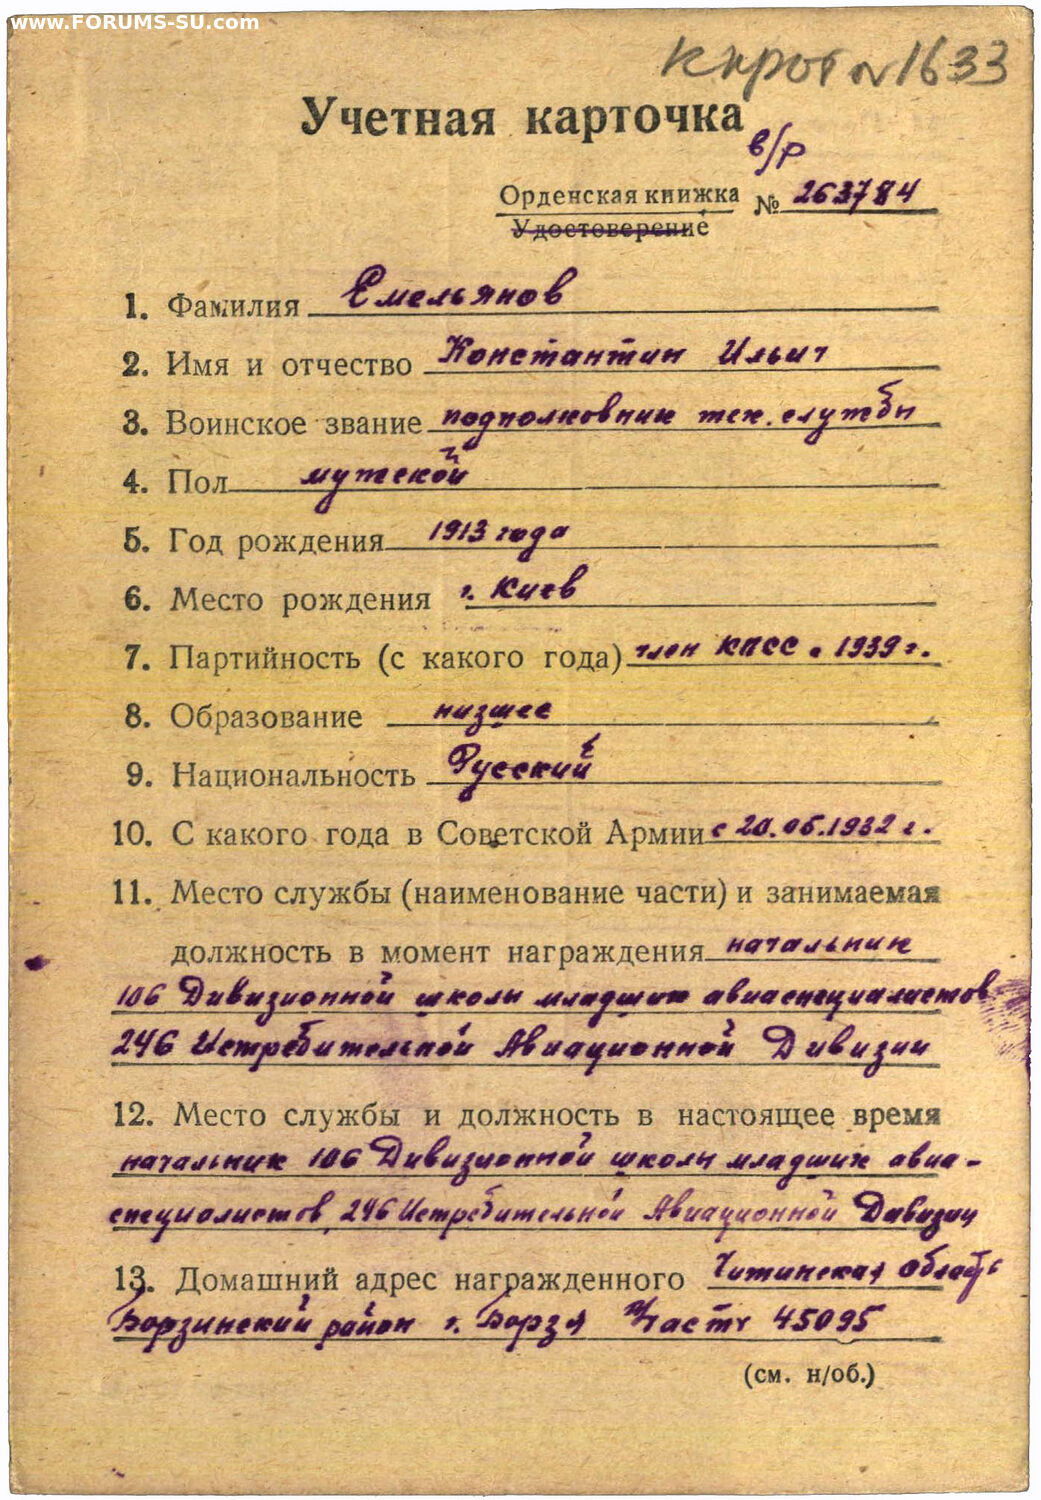 www.FORUMS-SU.com
к прот N 1633
Учетная карточка
в/р
Орденская книжка № 263784
Удостоверение
1. Фамилия Емельянов
2. Имя и отчество Константин Ильич
3. Воинское звание подполковник тех. службы
4. Пол мужской
5. Год рождения 1913 года
6. Место рождения г. Киев
7. Партийность (с какого года) член КПСС с 1939 г.
8. Образование низшее
9. Национальность Русский
10. С какого года в Советской Армии с 20.06.1932 г.
11. Место службы (наименование части) и занимаемая
должность в момент награждения начальник
106 Дивизионной школы младших авиаспециалистов
246 Истребительной Авиационной Дивизии
12. Место службы и должность в настоящее время
начальник 106 Дивизионной школы младших авиа-
специалистов 246 Истребительной Авиационной Дивизии
13. Домашний адрес награжденного Читинская область
Борзинский район г. Борзя часть 45095
(см. н/об.)